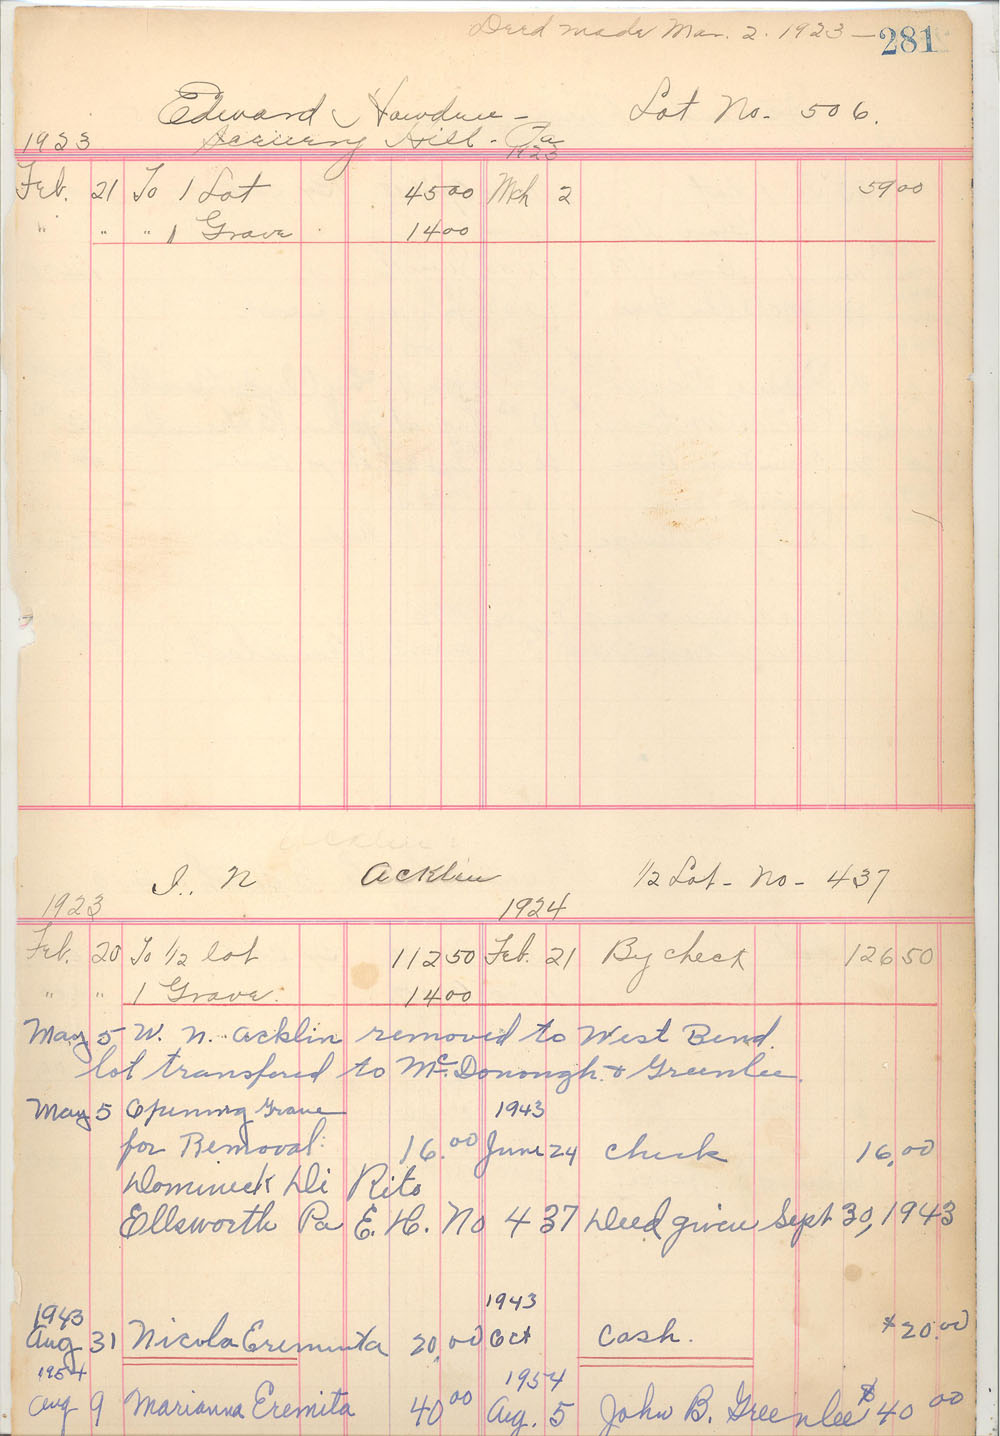 Deed made Mar. 2. 1923 — 281
Edward Howdure - Lot No. 506.
1923 Scenery Hill - Pa
1923
Feb. 21 To 1 Lot 45 00 Mch 2 59 00
" " " 1 Grave 14 00
I.. N Acklin 1/2 Lot - No - 437
1923 1924
Feb. 20 To 1/2 lot 112 50 Feb. 21 By check 126 50
" " 1 Grave. 14 00
May 5 W. N. Acklin removed to West Bend.
lot transfered to Mc.Donough & Greenlee.
May 5 Opening Grave 1943
for Removal: 16.00 June 24 check 16.00
Domineck Di Rito
Ellsworth Pa E. H. No 437 Deed given Sept 30, 1943
1943 1943
Aug 31 Nicola Eremita 20.00 Oct Cash. $20.00
1954 1954
Aug 9 Marianna Eremita 40 00 Aug. 5 John B. Greenlee $40 00